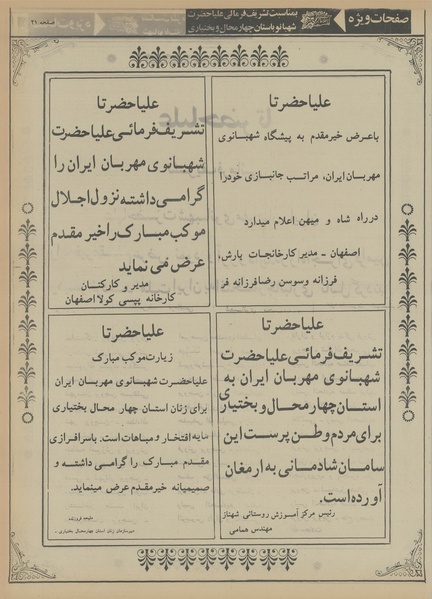 صفحات ویژه
بمناسبت تشریف فرمائی علیاحضرت
شهبانو باستان چهارمحال و بختیاری
صفحه ۲۱
علیاحضرتا
باعرض خیرمقدم به پیشگاه شهبانوی
مهربان ایران، مراتب جانبازی خودرا
درراه شاه و میهن اعلام میدارد
اصفهان - مدیر کارخانجات بارش،
فرزانه وسوسن رضا فرزانه فر
علیاحضرتا
تشریف فرمائی علیاحضرت
شهبانوی مهربان ایران را
گرامی داشته نزول اجلال
موکب مبارک را خیر مقدم
عرض می نماید
مدیر و کارکنان
کارخانه پپسی کولا اصفهان
علیاحضرتا
تشریف فرمائی علیاحضرت
شهبانوی مهربان ایران به
استان چهارمحال و بختیاری
برای مردم وطن پرست این
سامان شادمانی به ارمغان
آورده است.
رئیس مرکز آموزش روستائی شهناز
مهندس همامی
علیاحضرتا
زیارت موکب مبارک
علیاحضرت شهبانوی مهربان ایران
برای زنان استان چهار محال بختیاری
مایه افتخار و مباهات است. باسرافرازی
مقدم مبارک را گرامی داشته و
صمیمانه خیرمقدم عرض مینماید.
ملیحه فروزنده
دبیر سازمان زنان استان چهارمحال بختیاری